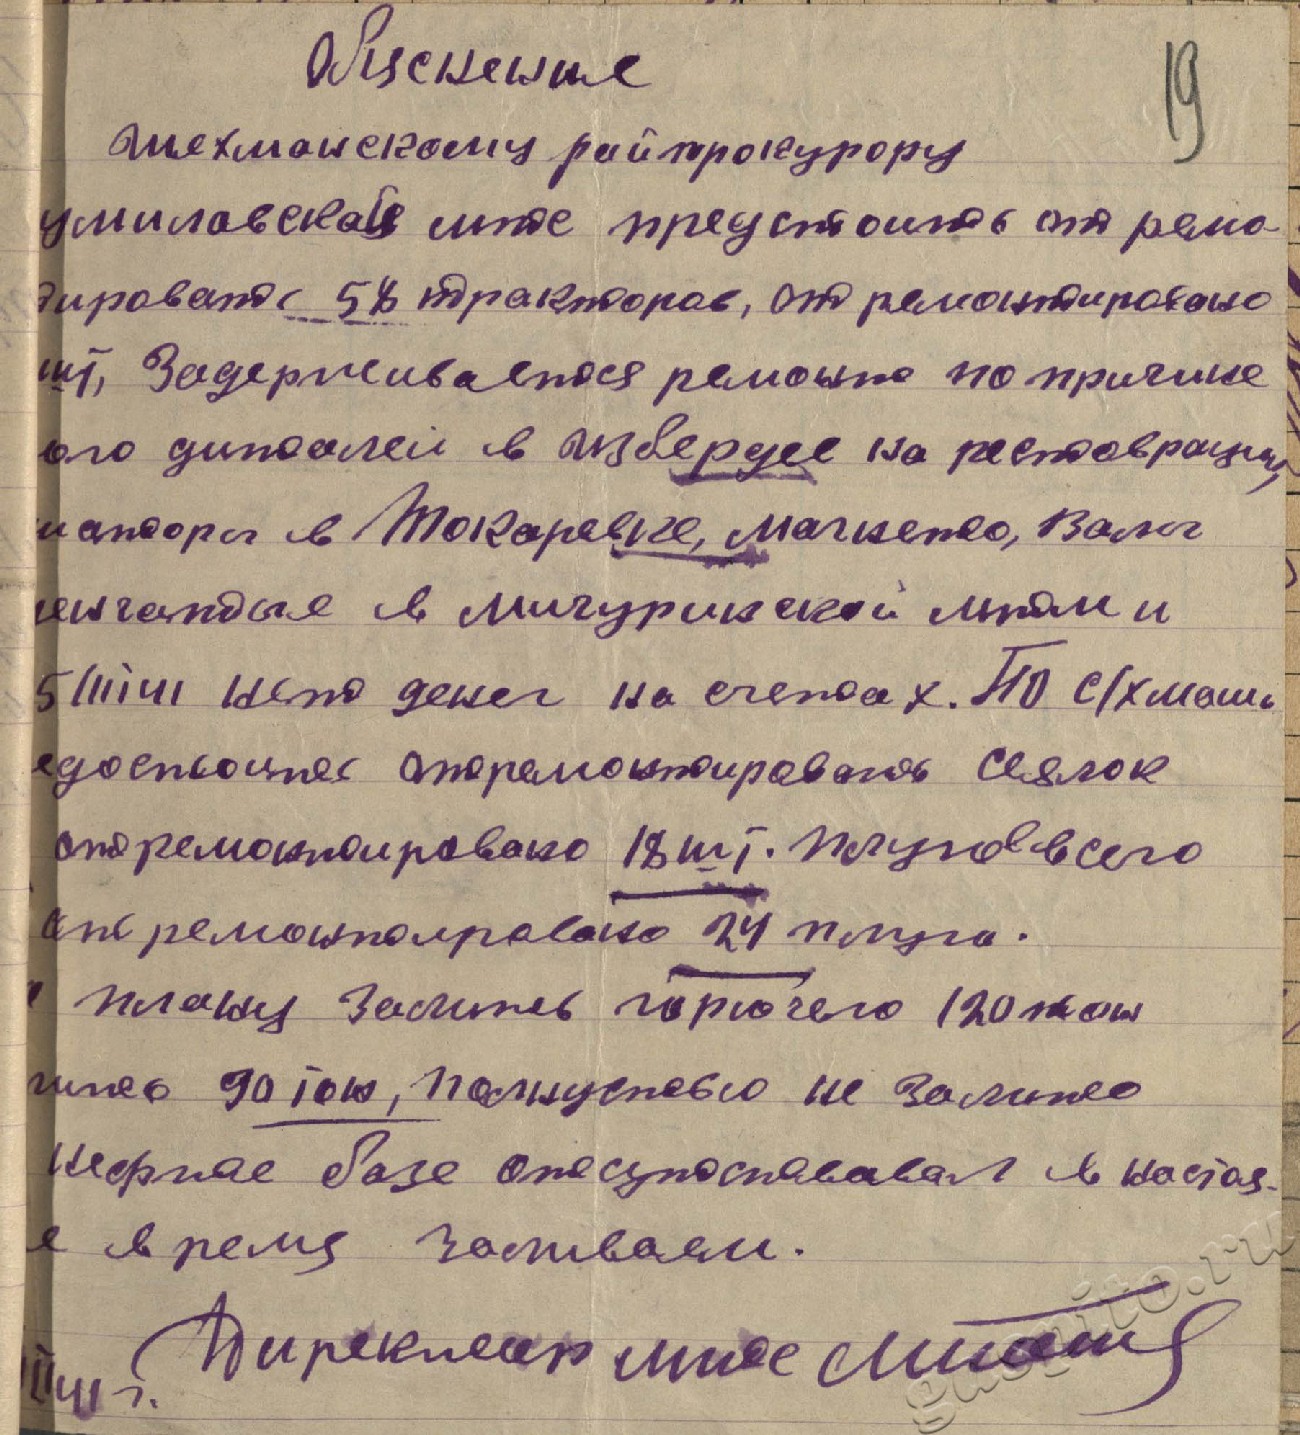 Обяснение
19
Шехманскому райпрокурору
умиловской мтс предстоить от ремо
тировать 58 тракторов, от ремонтировано
шт, Задерживается ремонт по причине
ого диталей в Избердее на реставрации,
иаторы в Токаревке, Магнето, Валы
в Мичуринской мтм и
нет денег на счетах. По с/х маши
едостьоить отремонтировать Сеялок
отремонтировано 18 шт. Плугов всего
от ремонтировано 24 плуга.
плану Залить горючего 120 тон
лито 90 тон, Полнустью не Залито
Нефте базе отсутоствавал в настоя-
е время Заливаем.
Директор мтс
41 г.
gaspito.ru